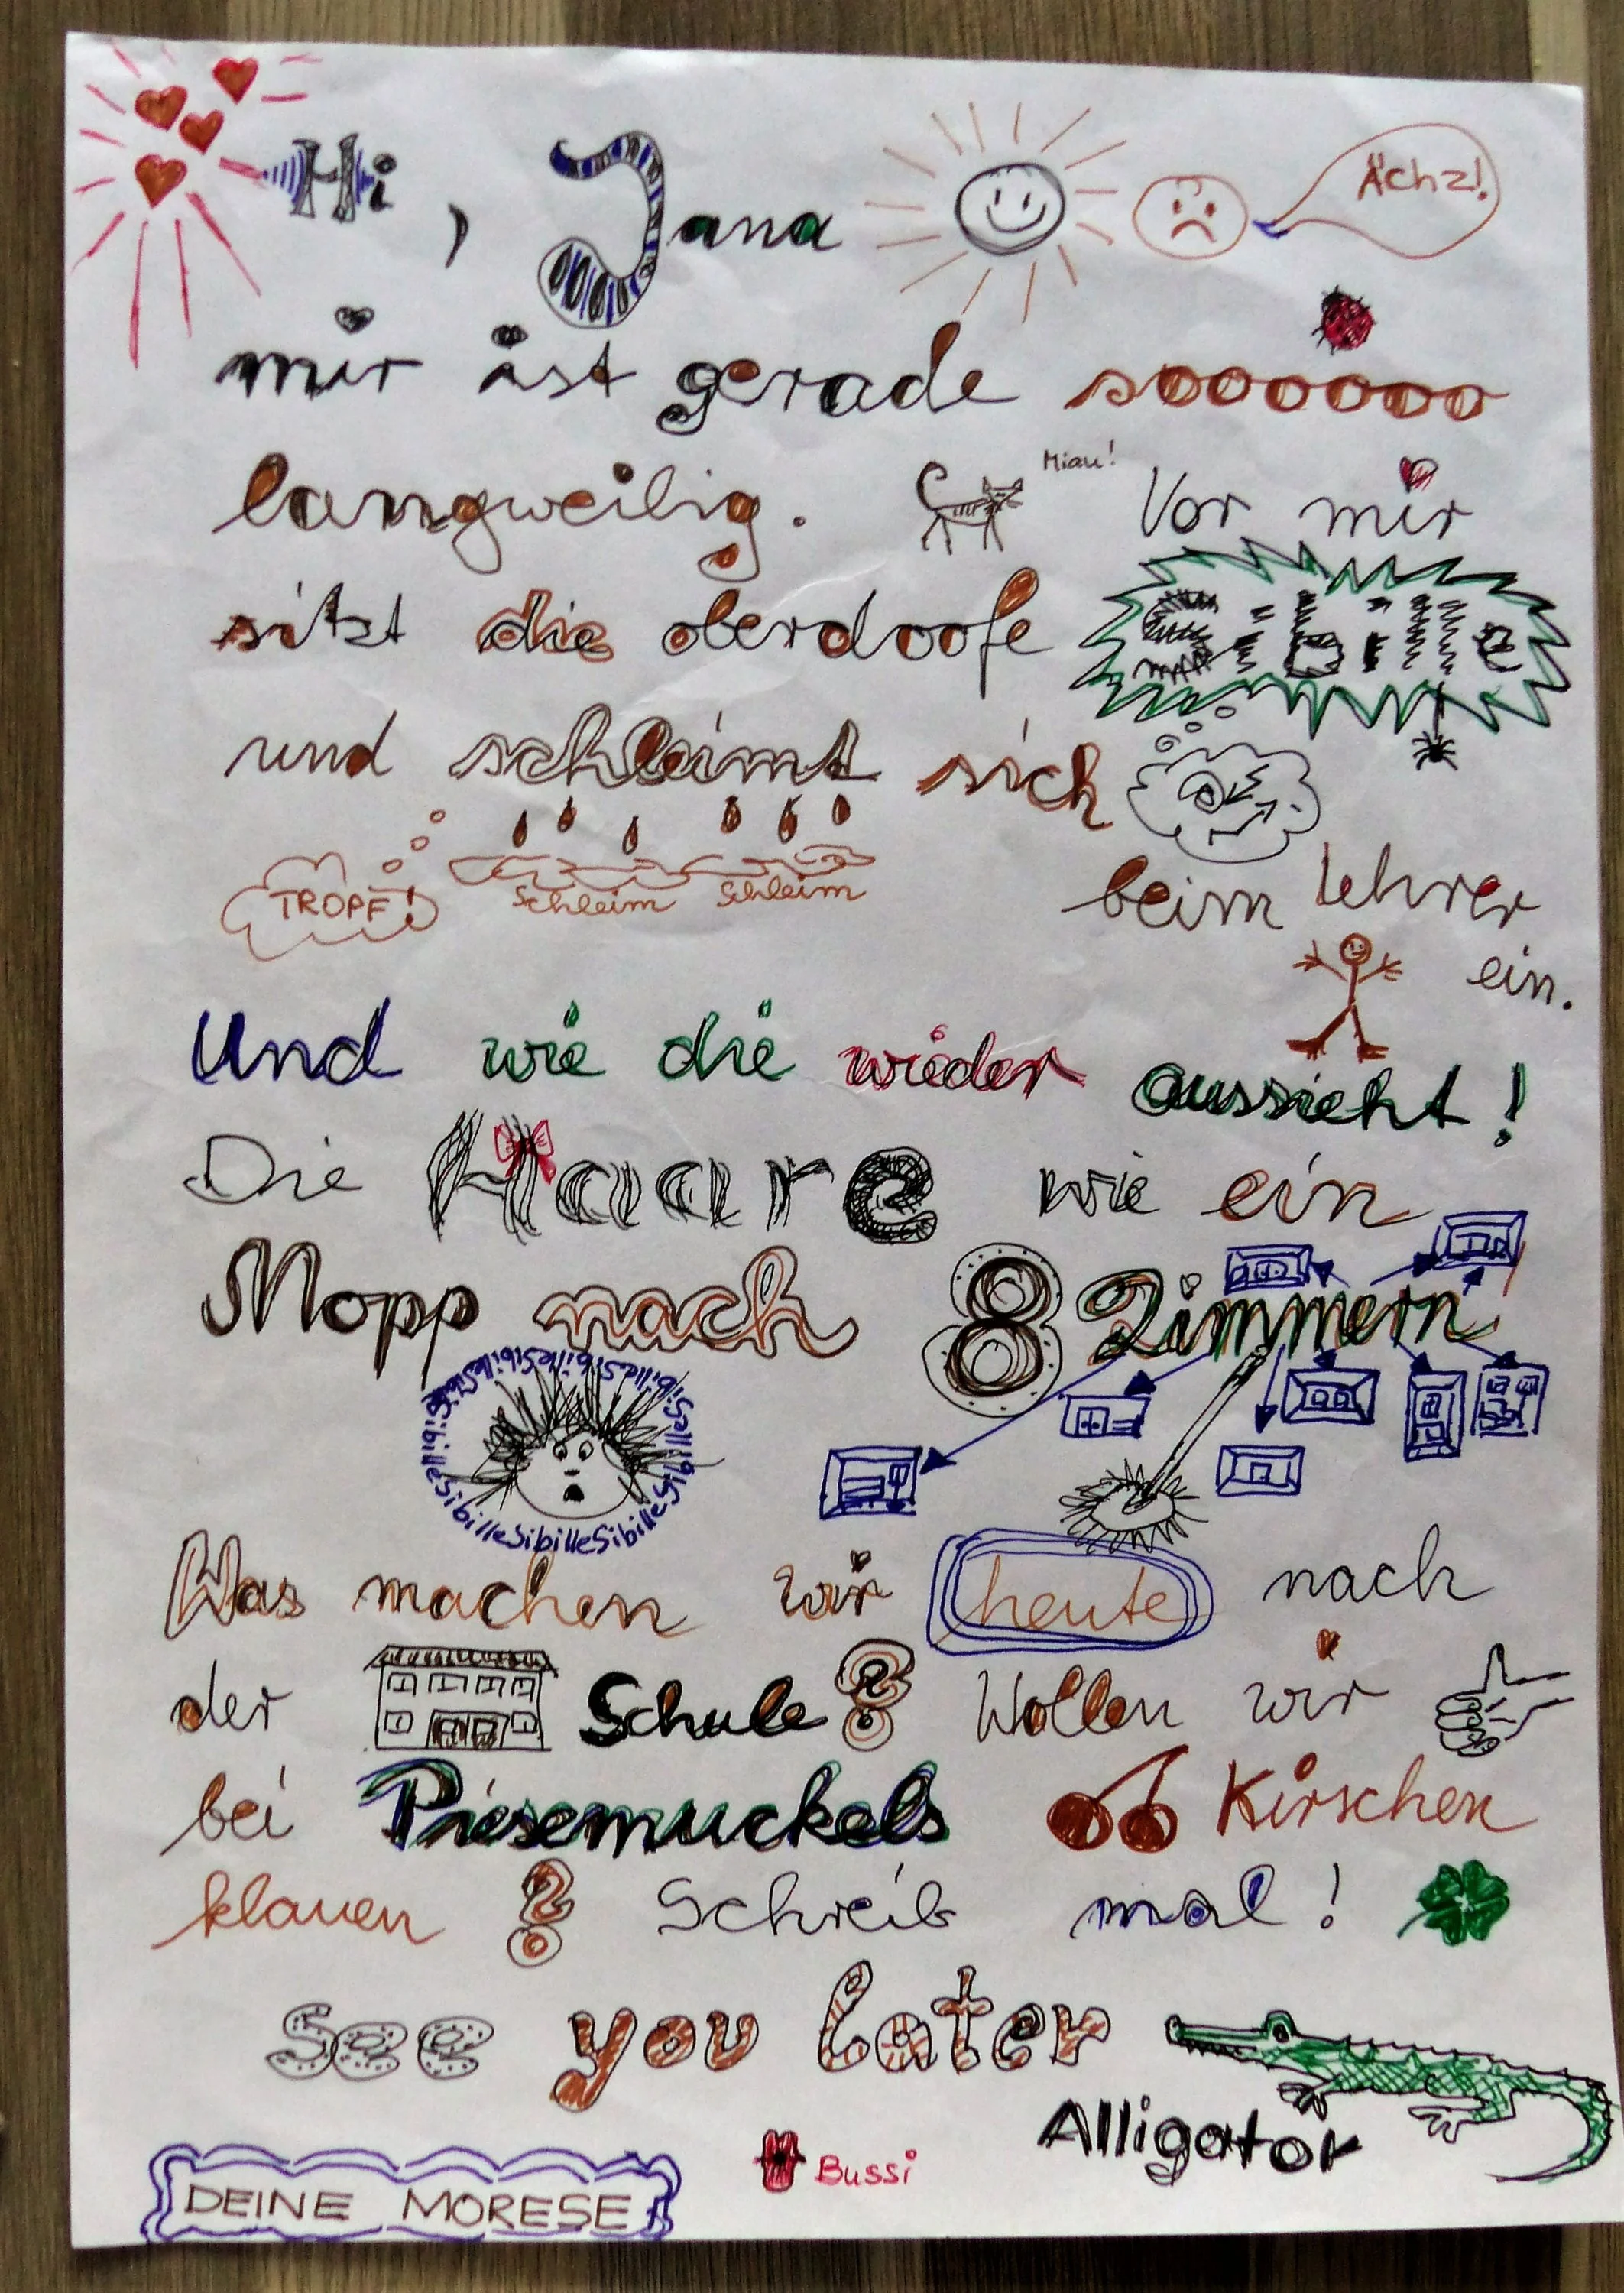 Hi, Jana
Ächz!
mir ist gerade soooooo
langweilig. Miau! Vor mir
sitzt die oberdoofe Sibille
und schleimt sich
TROPF! Schleim Schleim beim Lehrer
ein.
Und wie die wieder aussieht!
Die Haare wie ein
Mopp nach 8 Zimmern
SibilleSibilleSibilleSibilleSibilleSibilleSibilleSibille
Was machen wir heute nach
der Schule? Wollen wir
bei Piesemuckels Kirschen
klauen? Schreib mal!
See you later
Alligator
Bussi
DEINE MORESE